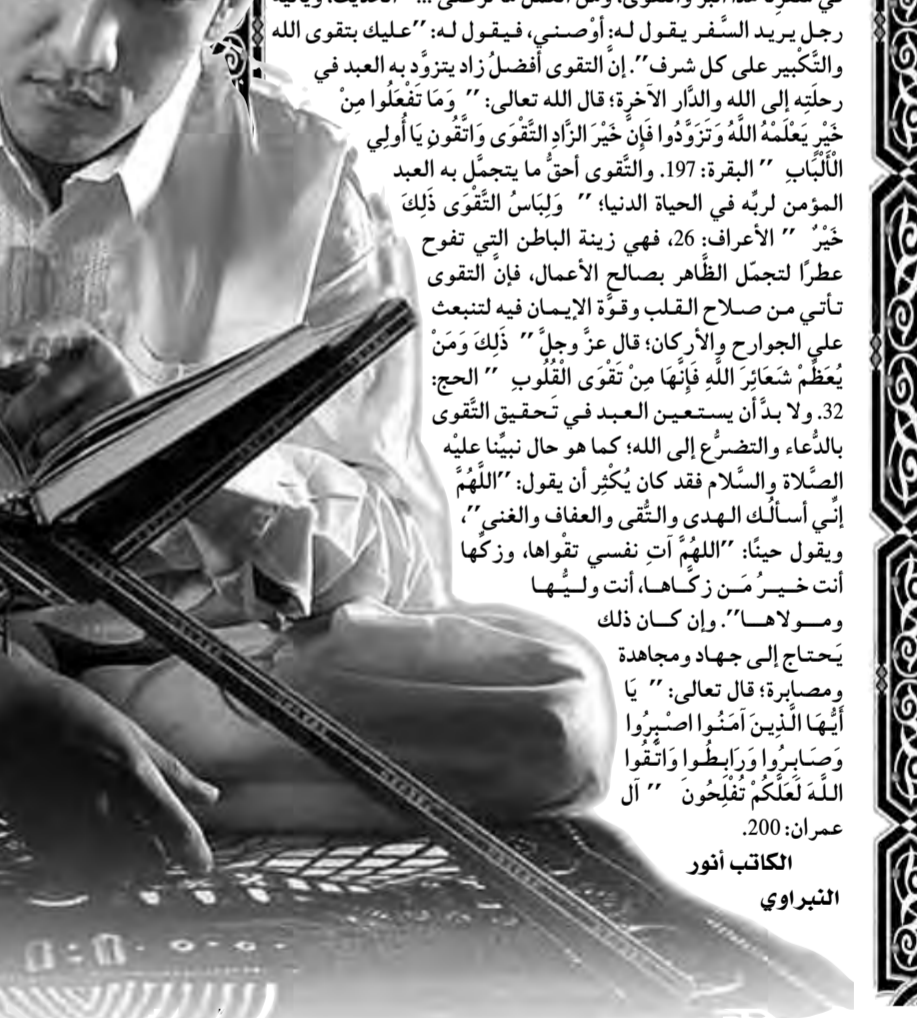 في سفرنا هذا البر والتقوى، ومن العمل ما ترضى ..." الحديث، ويأتيه
رجل يريد السَّفر يقول له: أوْصني، فيقول له: ’’عليك بتقوى الله
والتَّكْبير على كل شرف’’. إنَّ التقوى أفضلُ زاد يتزوَّد به العبد في
رحلَتِه إلى الله والدَّار الآخرة؛ قال الله تعالى: ’’ وَمَا تَفْعَلُوا مِنْ
خَيْرٍ يَعْلَمْهُ اللَّهُ وَتَزَوَّدُوا فَإِنَّ خَيْرَ الزَّادِ التَّقْوَى وَاتَّقُونِ يَا أُولِي
الْأَلْبَابِ ’’ البقرة: 197. والتَّقوى أحقُّ ما يتجمَّل به العبد
المؤمن لربِّه في الحياة الدنيا؛ ’’ وَلِبَاسُ التَّقْوَى ذَلِكَ
خَيْرٌ ’’ الأعراف: 26، فهي زينة الباطن التي تفوح
عطرًا لتجمّل الظَّاهر بصالح الأعمال، فإنَّ التقوى
تأتي من صلاح القلب وقوَّة الإيمان فيه لتنبعث
على الجوارح والأركان؛ قال عزَّ وجلَّ ’’ ذَلِكَ وَمَنْ
يُعَظِّمْ شَعَائِرَ اللَّهِ فَإِنَّهَا مِنْ تَقْوَى الْقُلُوبِ ’’ الحج:
32. ولا بدَّ أن يستعين العبد في تَحقيق التَّقوى
بالدُّعاء والتضرُّع إلى الله؛ كما هو حال نبيِّنا عليْه
الصَّلاة والسَّلام فقد كان يُكْثِر أن يقول: ’’اللَّهُمَّ
إنِّي أسألُك الهدى والتُّقى والعفاف والغنى’’،
ويقول حينًا: ’’اللهُمَّ آتِ نفسي تقْواها، وزكِّها
أنت خيرُ مَن زكَّاها، أنت وليُّها
ومولاها’’. وإن كان ذلك
يَحتاج إلى جهاد ومجاهدة
ومصابرة؛ قال تعالى: ’’ يَا
أَيُّهَا الَّذِينَ آمَنُوا اصْبِرُوا
وَصَابِرُوا وَرَابِطُوا وَاتَّقُوا
اللَّهَ لَعَلَّكُمْ تُفْلِحُونَ ’’ آل
عمران: 200.
الكاتب أنور
النبراوي